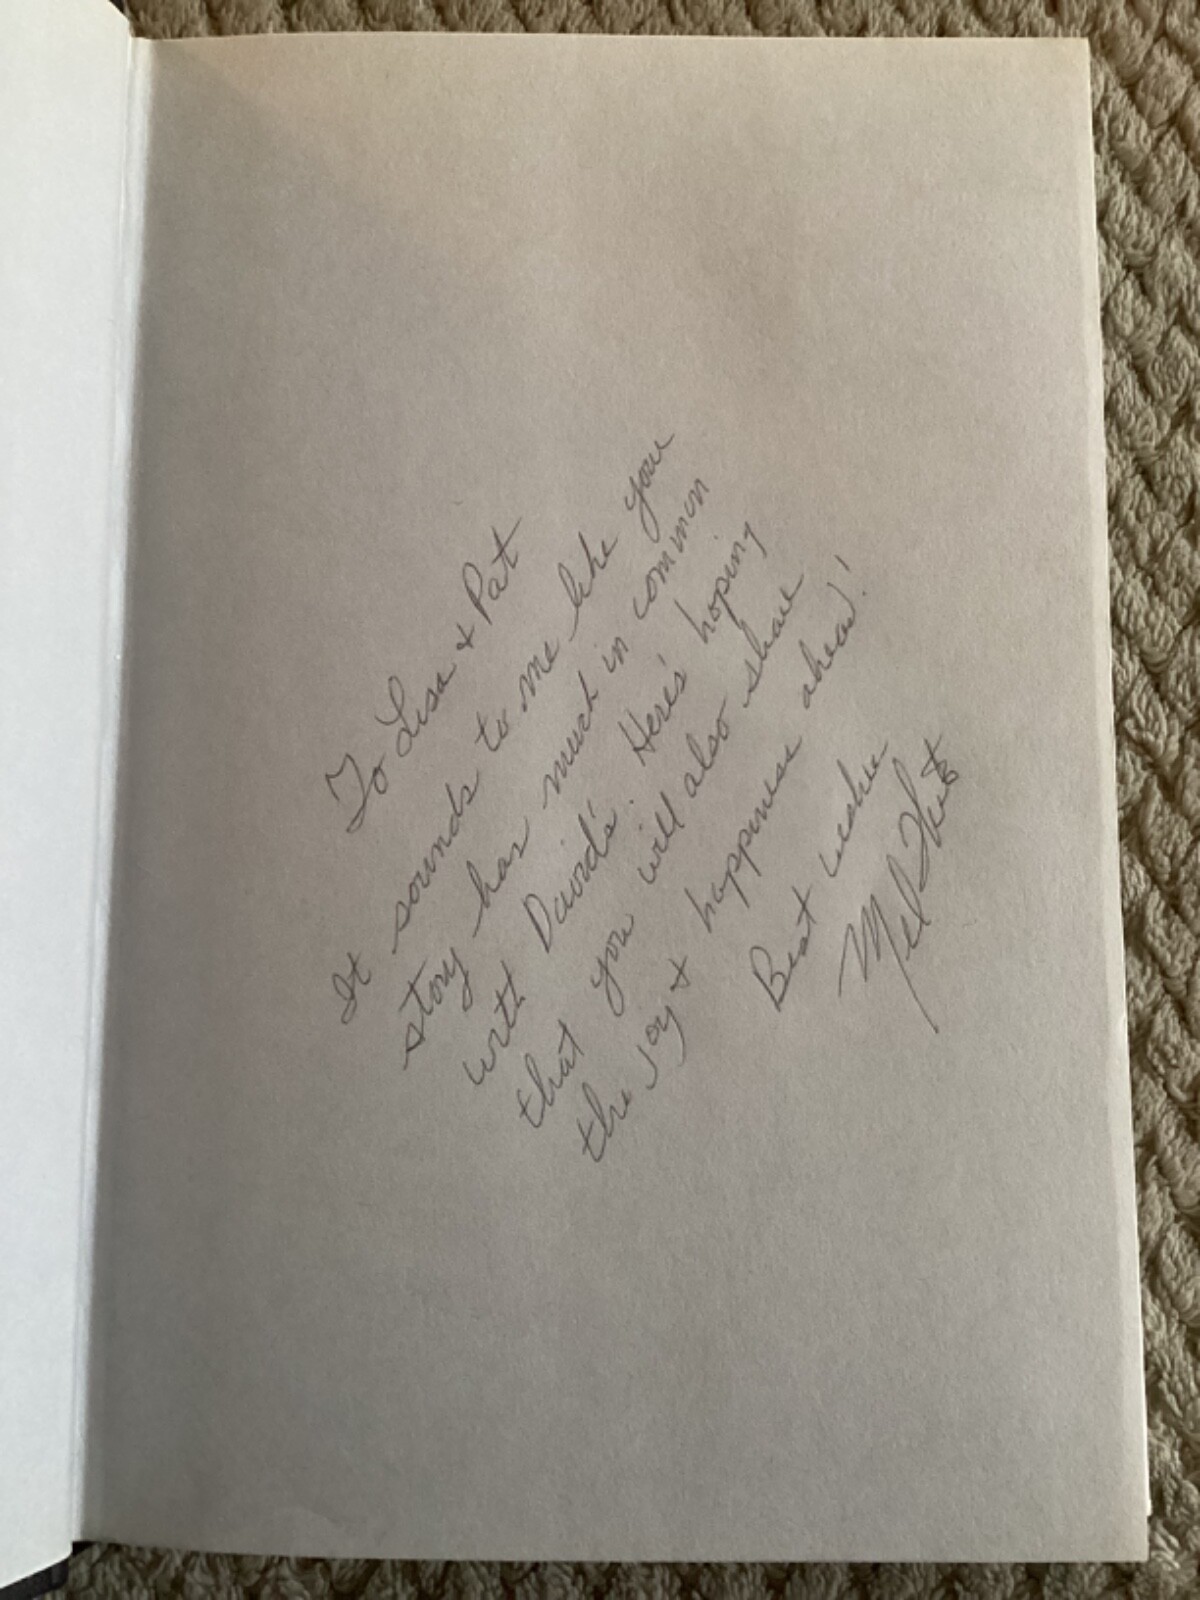 To Lisa + Pat
It sounds to me like your
story has much in common
with David's. Here's hoping
that you will also share
the joy + happiness ahead!
Best wishes
Mel White